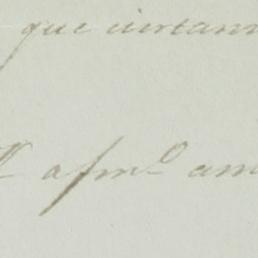 que ciertam
afmo am